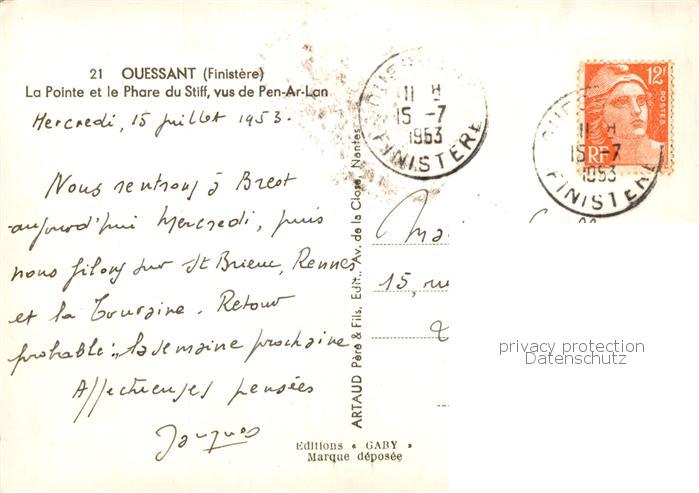 21 OUESSANT (Finistère)
La Pointe et le Phare du Stiff, vus de Pen-Ar-Lan
Mercredi, 15 juillet 1953.
Nous rentrons à Brest
aujourd'hui Mercredi, puis
nous filons sur St Brieuc, Rennes
et la Touraine. Retour
probable : la semaine prochaine
Affectueuses pensées
Jacques
ARTAUD Père & Fils, Edit., Av. de la Close, Nantes
Editions « GABY »
Marque déposée
11 H
15 -7
1953
FINISTÈRE
12F
POSTES
RF
11 H
15 -7
1953
FINISTÈRE
15, rue
privacy protection
Datenschutz